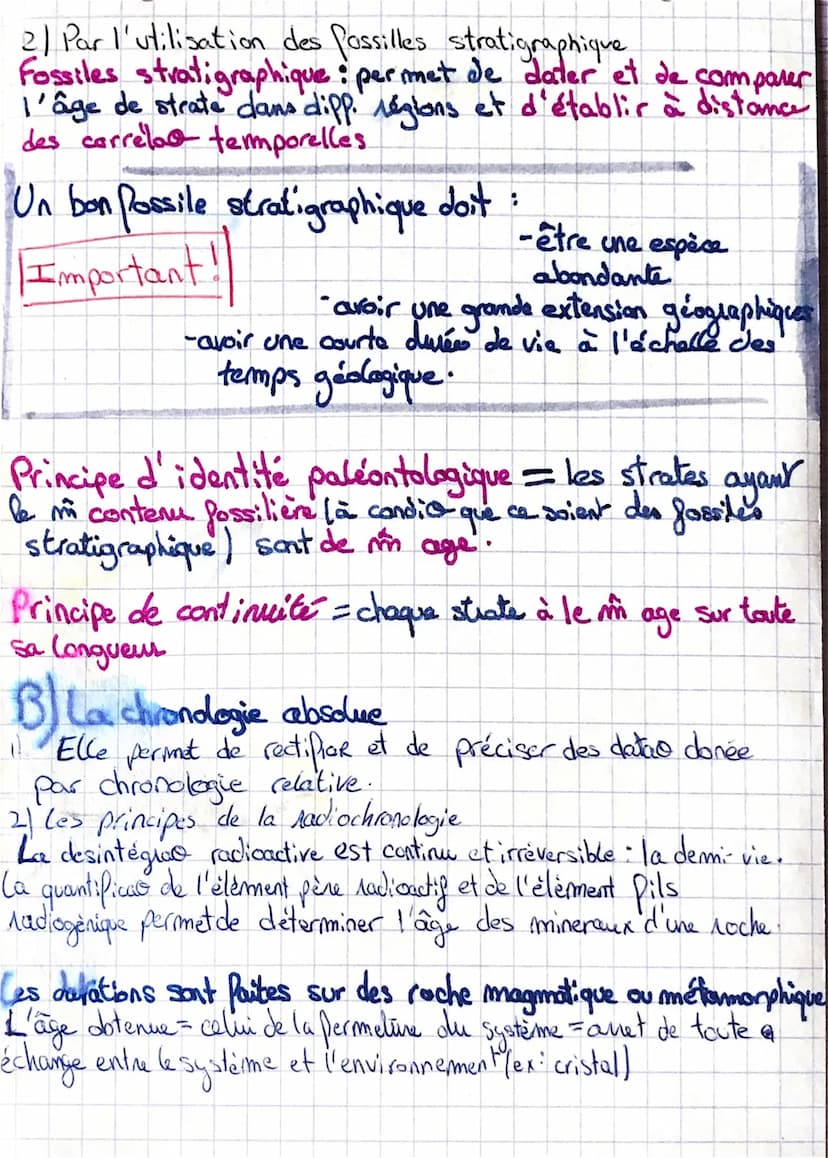 2) Par l'utilisation des fossilles stratigraphique
Fossiles stratigraphique : permet de dater et de comparer
l'âge de strate dans diff. régions et d'établir à distance
des corrélao temporelles
Un bon fossile stratigraphique doit :
-être une espèce
abondante
Important!
-avoir une grande extension géographiques
-avoir une courte durées de vie à l'échelle des
temps géologique.
Principe d'identité paléontologique = les strates ayant
le m̂ contenu fossilière (à condio que ce soient des fossiles
stratigraphique) sont de m̂ age.
Principe de continuité = chaque strate à le m̂ age sur toute
sa longueur
B) La chronologie absolue
1) Elle permet de rectifier et de préciser des datao donée
par chronologie relative.
2) Les principes de la radiochronologie
La desintégrao radioactive est continu et irréversible : la demi-vie.
La quantificao de l'élèment père radioactif et de l'élèment fils
radiogènique permet de déterminer l'âge des mineraux d'une roche.
Les datations sont faites sur des roche magmatique ou métamorphique
L'âge obtenue = celui de la fermeture du système = arret de toute
échange entre le système et l'environnement (ex: cristal)